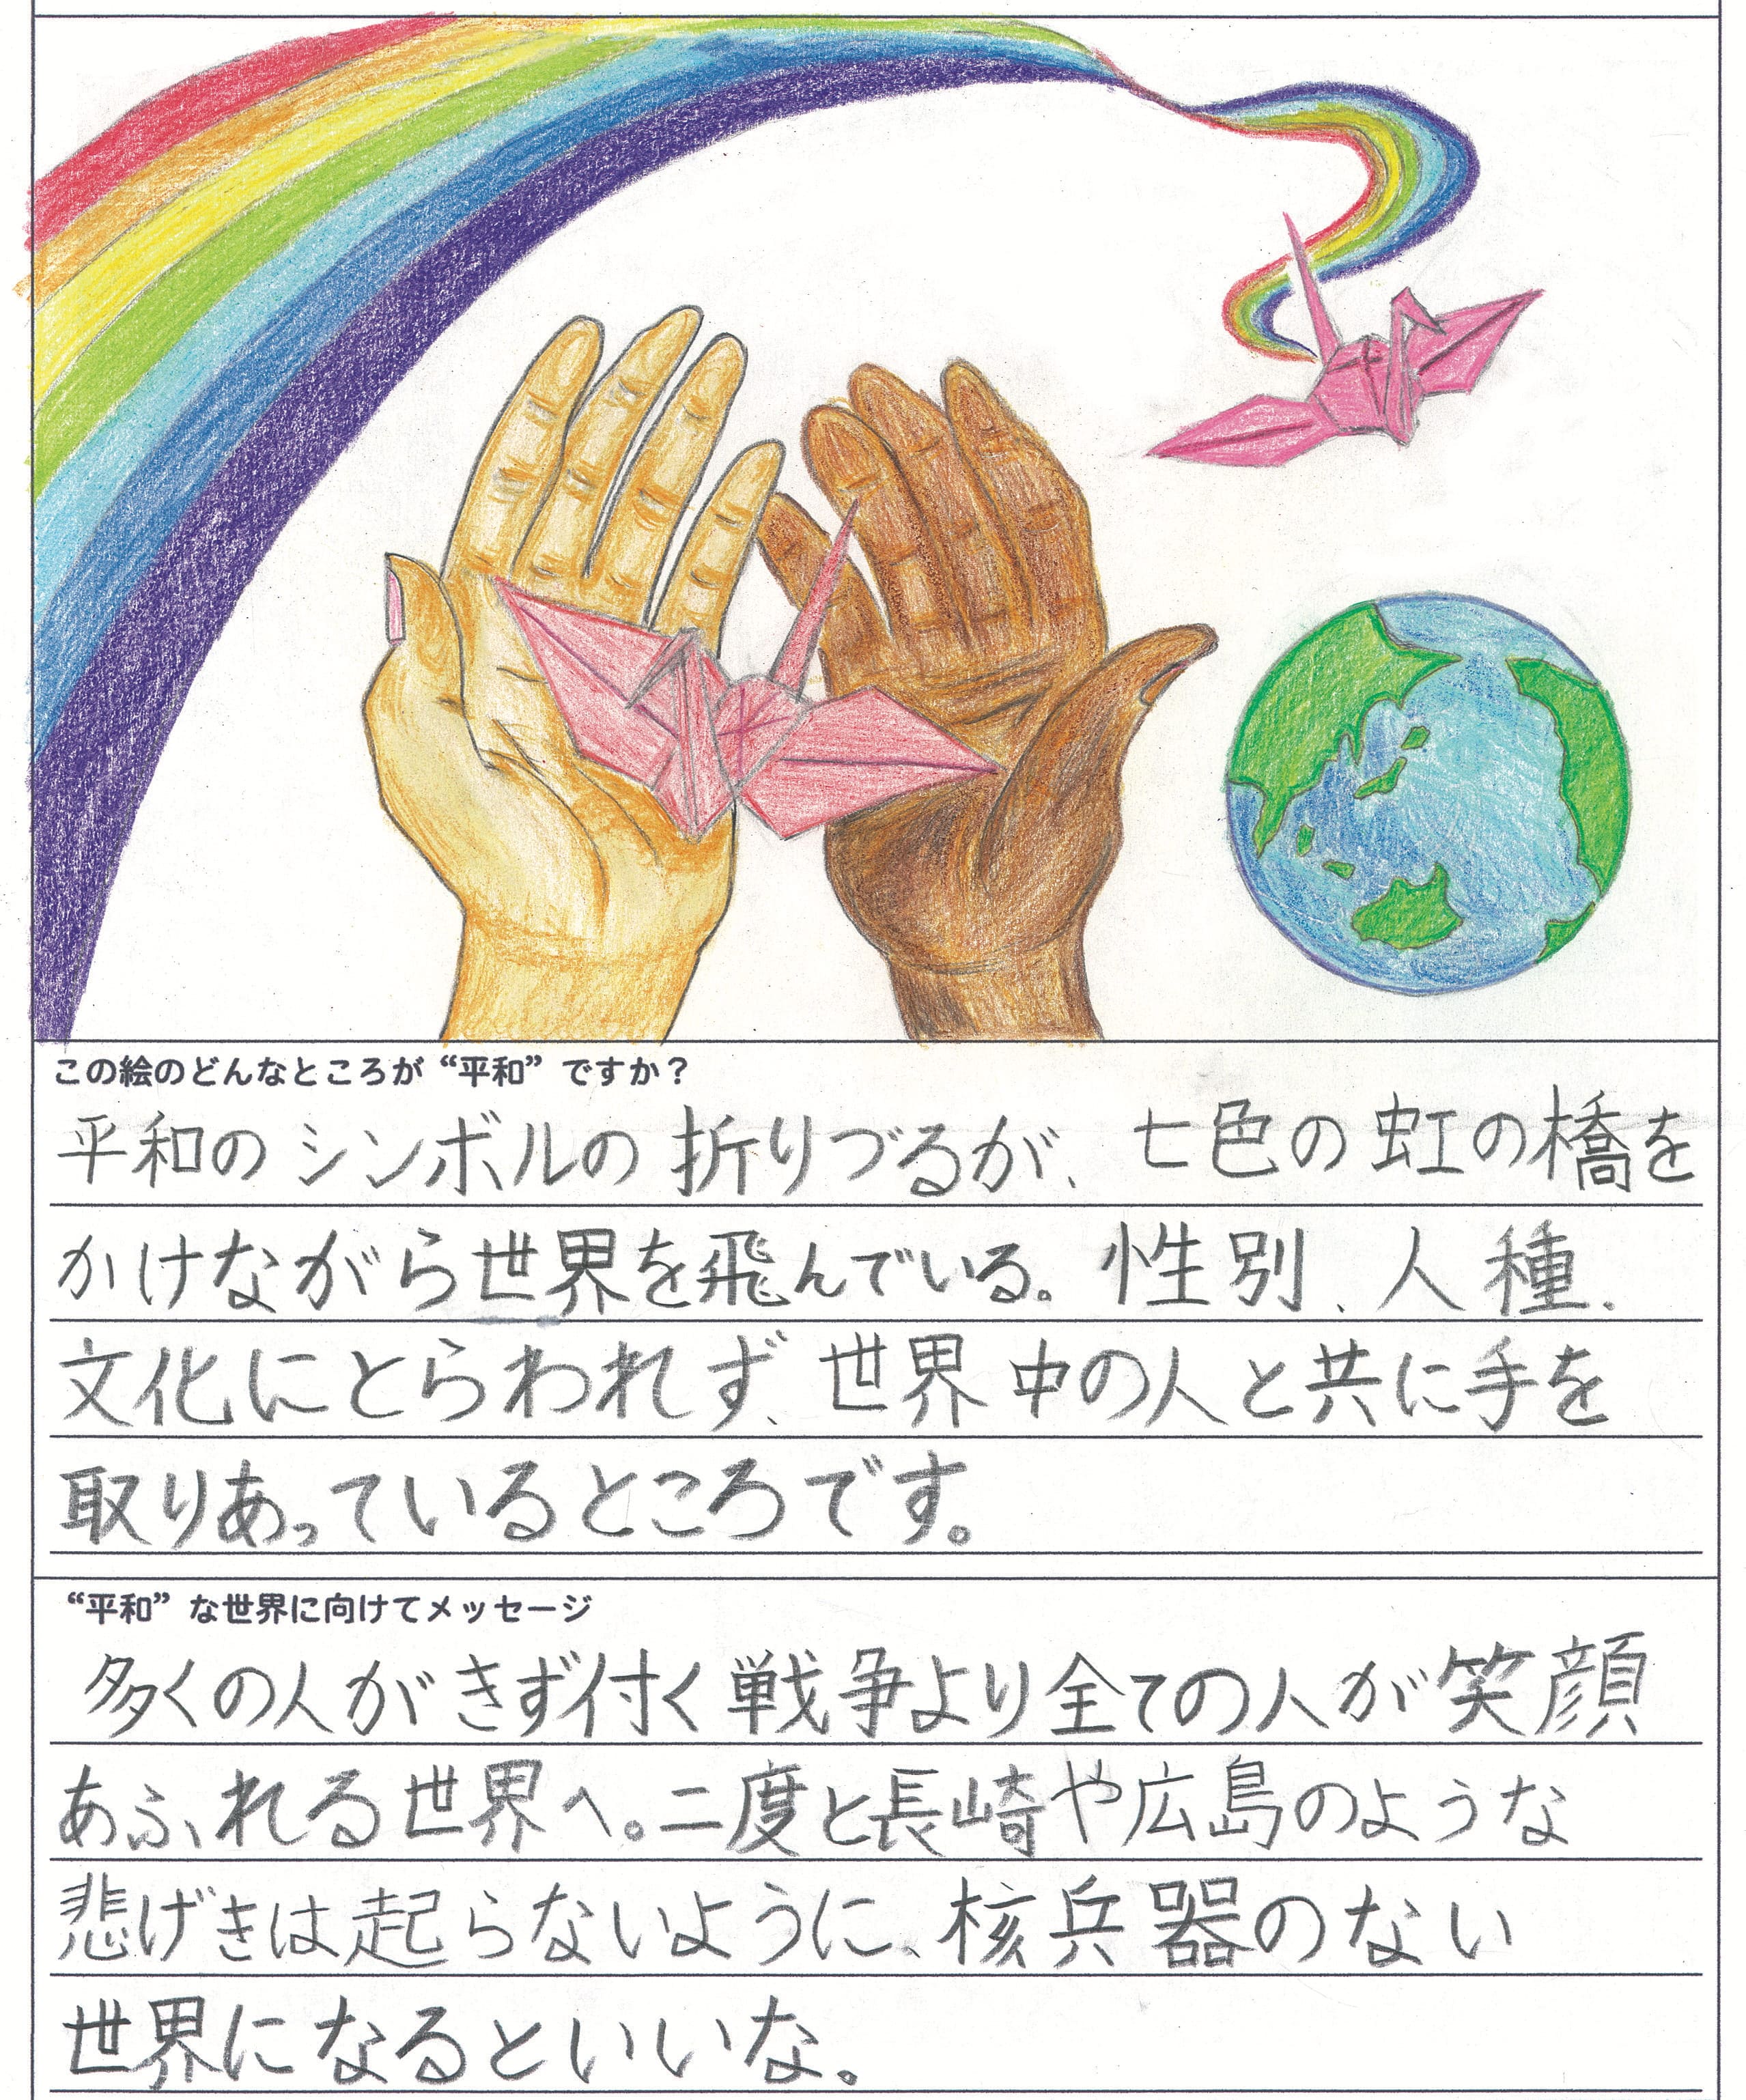 この絵のどんなところが“平和”ですか？
平和のシンボルの折りづるが、七色の虹の橋を
かけながら世界を飛んでいる。性別、人種、
文化にとらわれず、世界中の人と共に手を
取りあっているところです。
“平和”な世界に向けてメッセージ
多くの人がきず付く戦争より全ての人が笑顔
あふれる世界へ。二度と長崎や広島のような
悲げきは起らないように、核兵器のない
世界になるといいな。